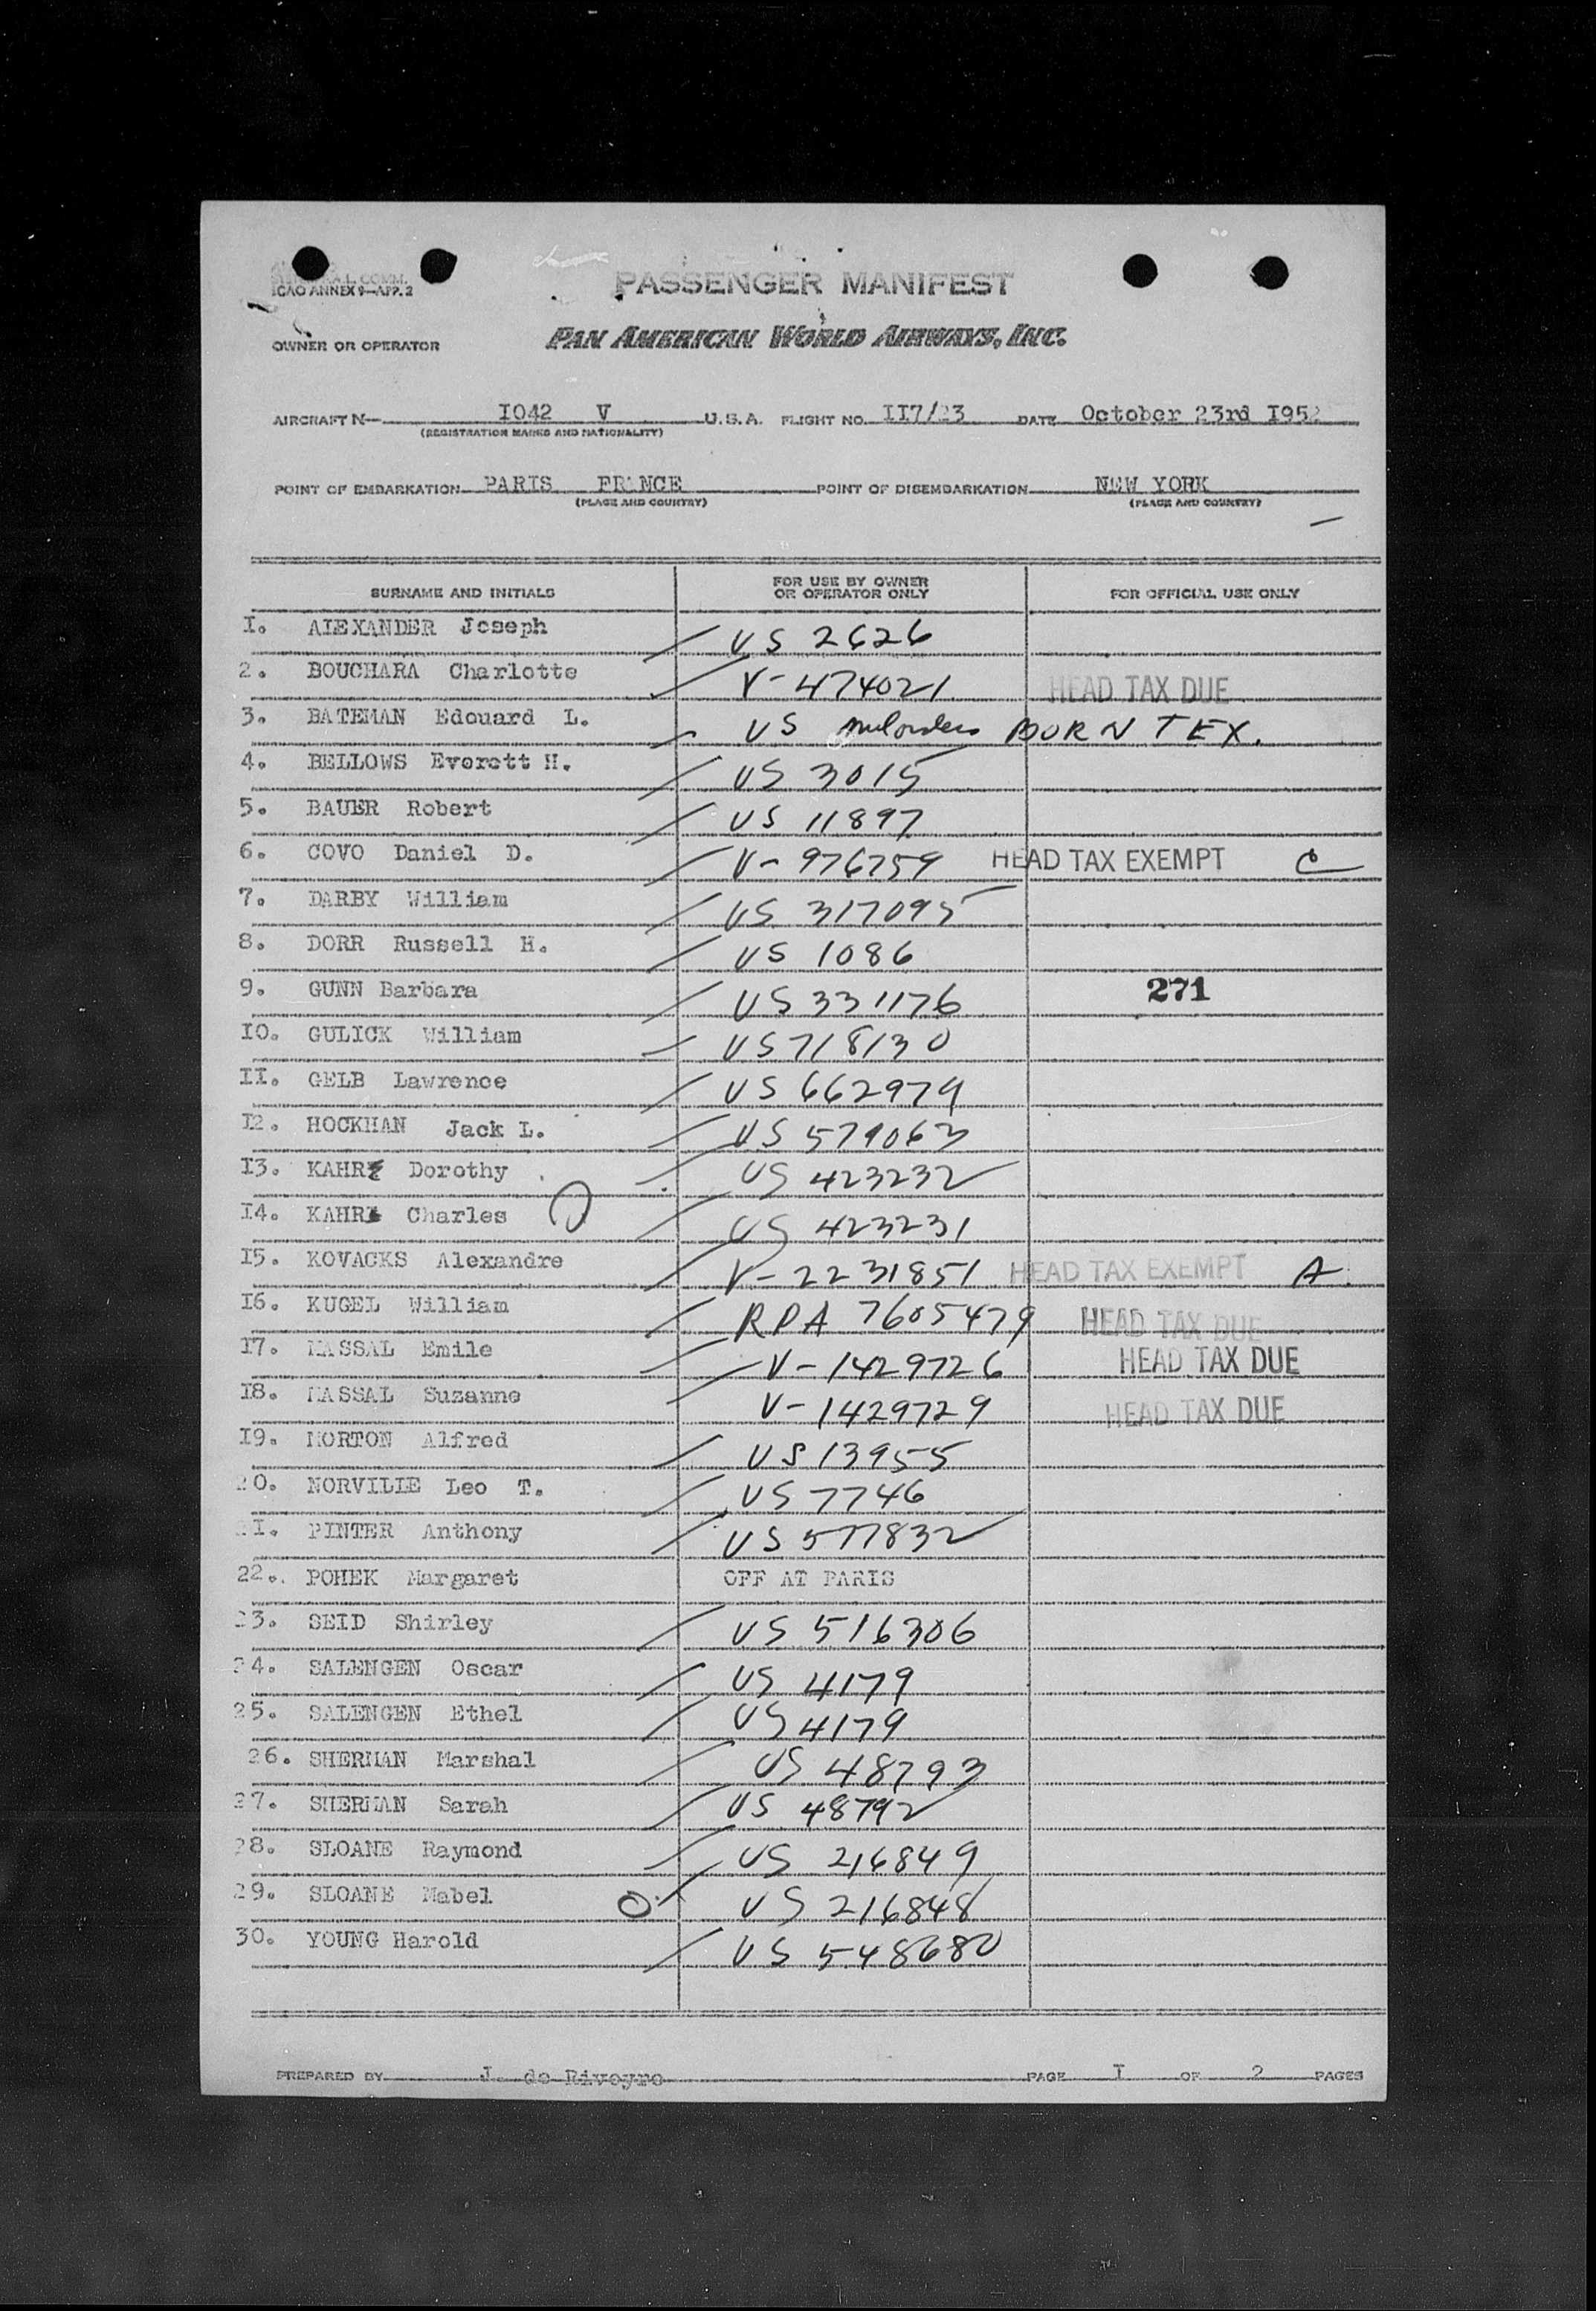 PASSENGER MANIFEST
ICAO ANNEX 9—APP. 2
OWNER OR OPERATOR PAN AMERICAN WORLD AIRWAYS, INC.
AIRCRAFT N— I042 V U.S.A. FLIGHT NO. II7/23 DATE October 23rd I952
(REGISTRATION MARKS AND NATIONALITY)
POINT OF EMBARKATION PARIS FRANCE POINT OF DISEMBARKATION NEW YORK
(PLACE AND COUNTRY) (PLACE AND COUNTRY)
SURNAME AND INITIALS FOR USE BY OWNER OR OPERATOR ONLY FOR OFFICIAL USE ONLY
I. ALEXANDER Joseph US 2626
2. BOUCHARA Charlotte V-474021 HEAD TAX DUE
3. BATEMAN Edouard L. US BORN TEX.
4. BELLOWS Everett H. US 3015
5. BAUER Robert US 11897
6. COVO Daniel D. V-976759 HEAD TAX EXEMPT C
7. DARBY William US 317095
8. DORR Russell H. US 1086
9. GUNN Barbara US 331176 271
I0. GULICK William US 718130
II. GELB Lawrence US 662979
I2. HOCKMAN Jack L. US 579063
I3. KAHR Dorothy US 423232
I4. KAHR Charles US 423231
I5. KOVACKS Alexandre V-2231851 HEAD TAX EXEMPT A
I6. KUGEL William RPA 7605479 HEAD TAX DUE
I7. MASSAL Emile V-1429726 HEAD TAX DUE
I8. MASSAL Suzanne V-1429729 HEAD TAX DUE
I9. MORTON Alfred US 13955
20. NORVILLE Leo T. US 7746
2I. PINTER Anthony US 577832
22. POHEK Margaret OFF AT PARIS
23. SEID Shirley US 516306
24. SALENGEN Oscar US 4179
25. SALENGEN Ethel US 4179
26. SHERMAN Marshal US 48793
27. SHERMAN Sarah US 48792
28. SLOANE Raymond US 216849
29. SLOANE Mabel US 216848
30. YOUNG Harold US 548680
PREPARED BY J. de Riveyre PAGE I OF 2 PAGES